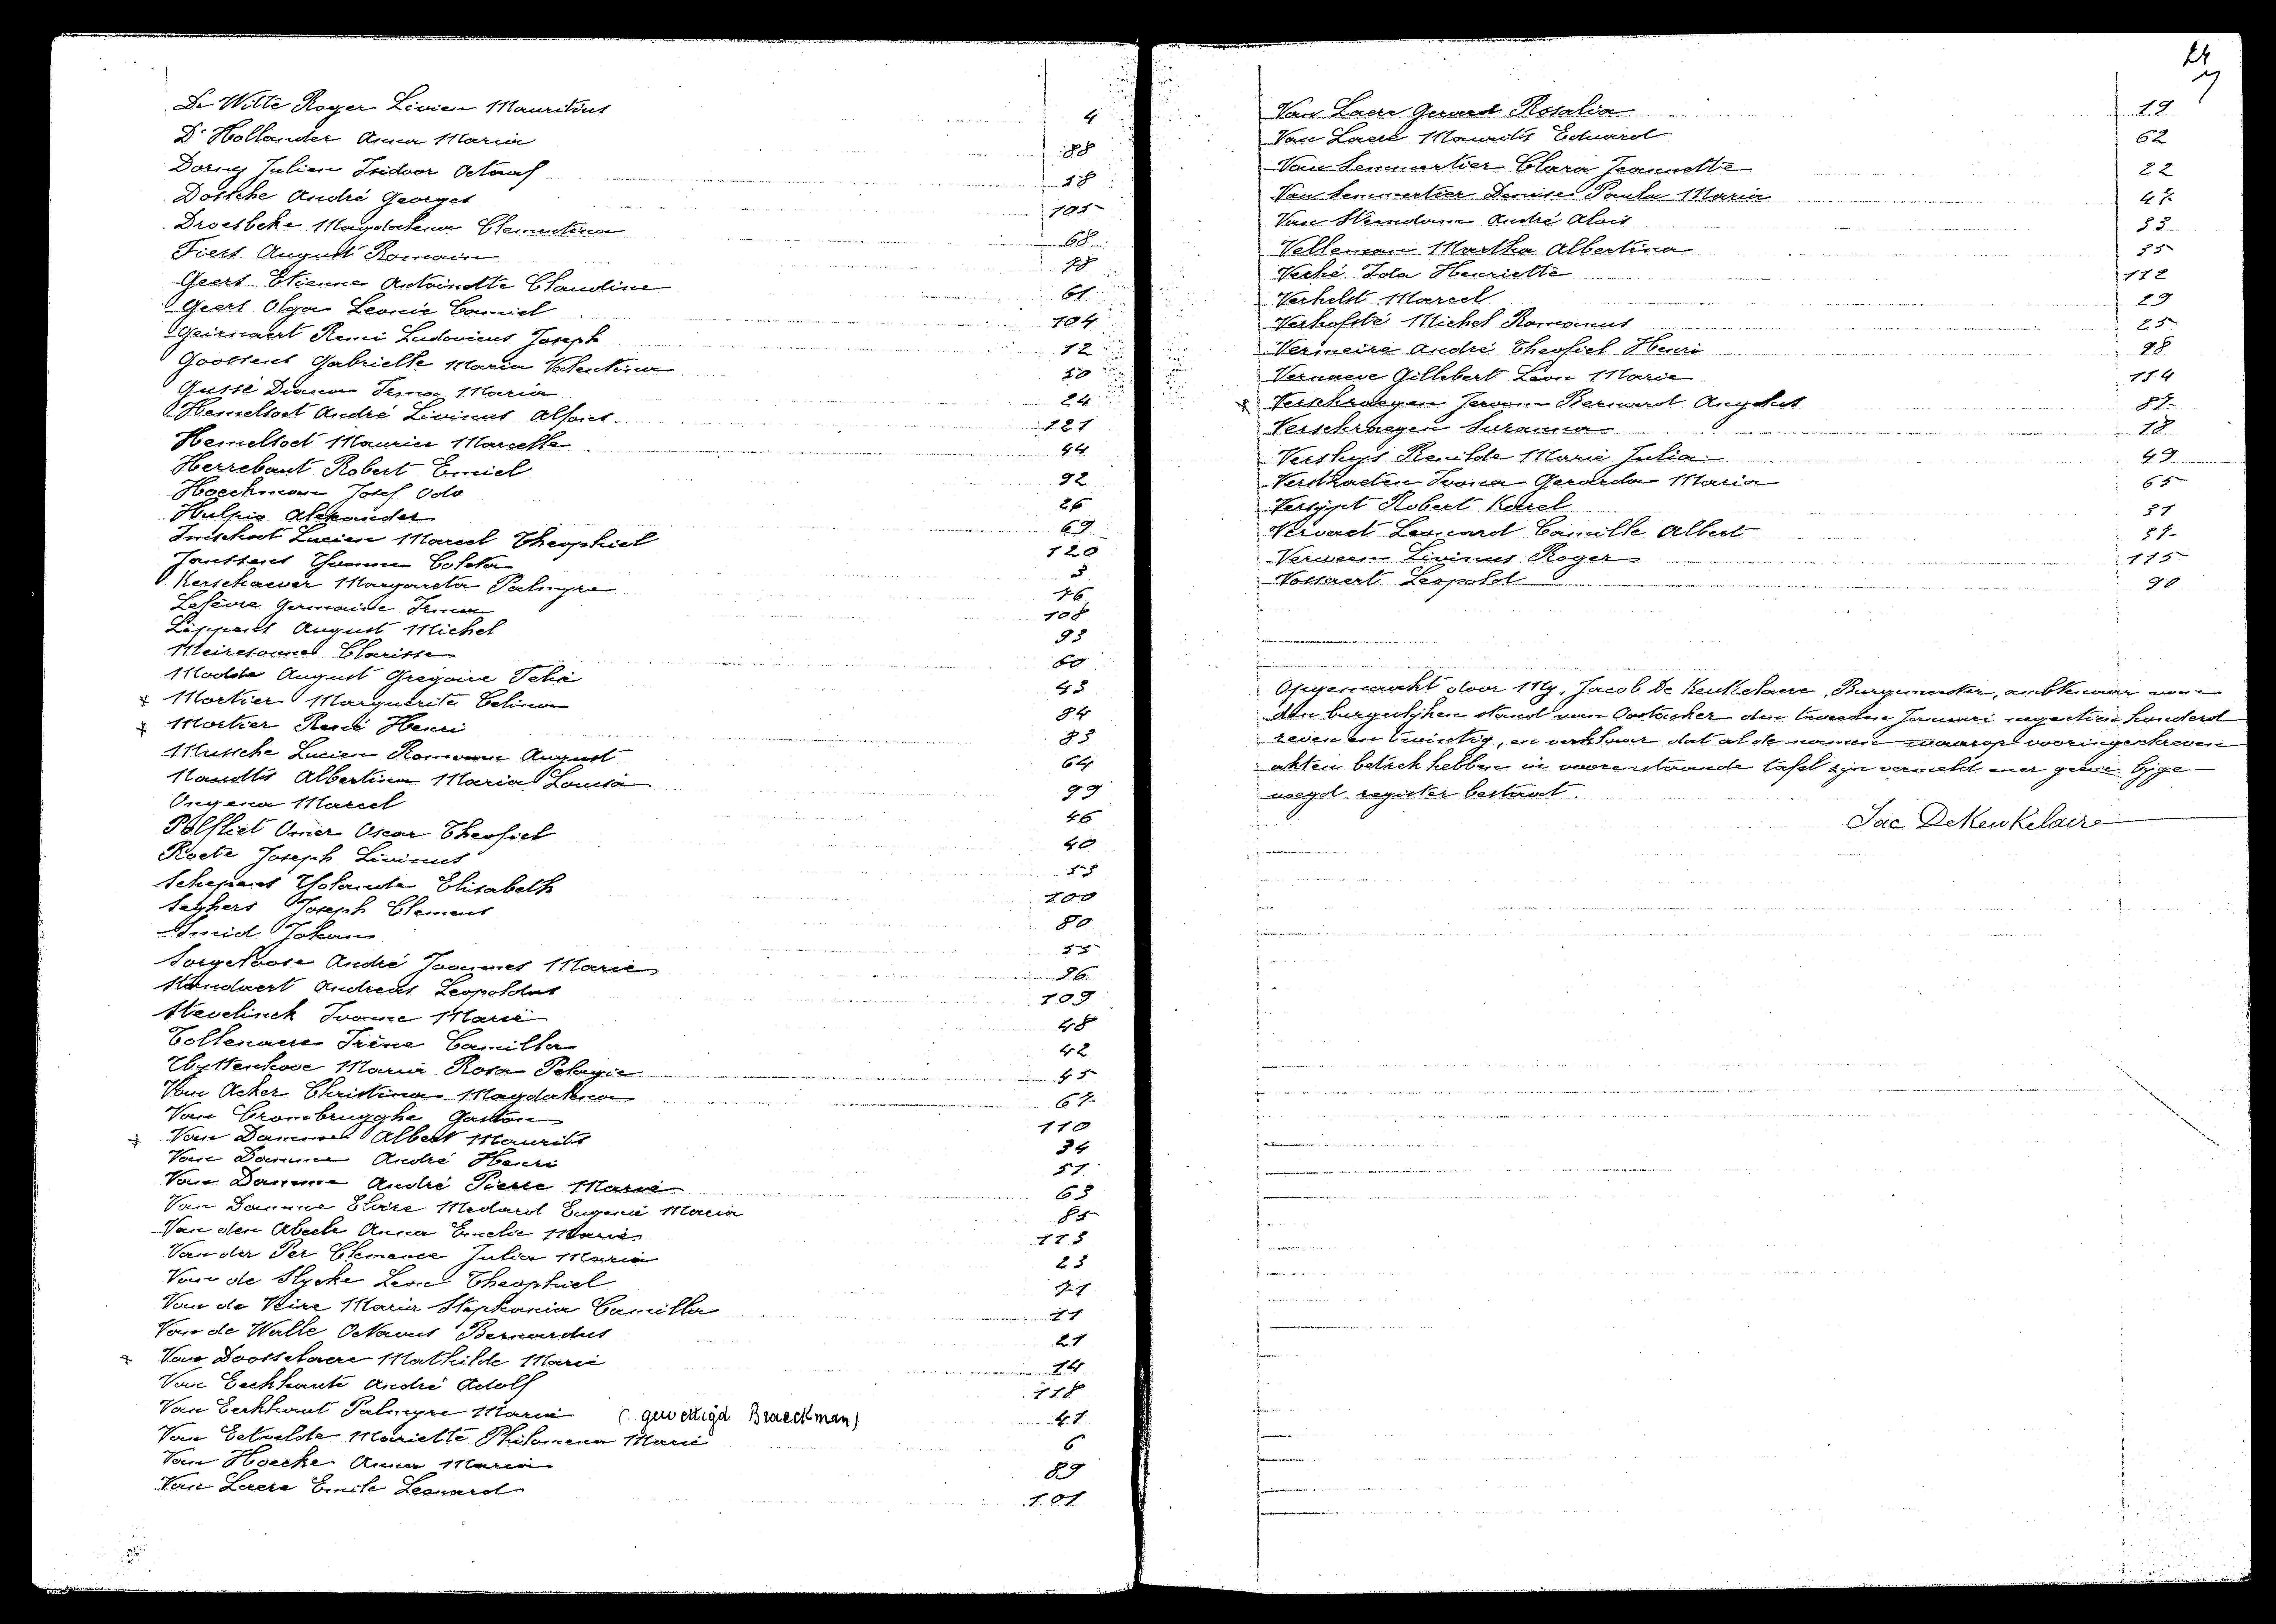 De Witte Roger Livien Mauritius 4
D'Hollander Anna Maria 88
Dorny Julien Isidoor Octaaf 58
Dossche André Georges 105
Droesbeke Magdalena Clementina 68
Fiers August Romain 78
Geers Etienne Antoinette Claudine 61
Geers Olga Leonie Camiel 104
Geirnaert Remi Ludovicus Joseph 12
Goossens Gabrielle Maria Valentina 50
Gussé Diana Irma Maria 24
Hemelsoet André Livinus Alfons 121
Hemelsoet Maurice Marcelle 44
Herrebaut Robert Emiel 92
Hoeckman Josef Odo 26
Hulpio Alexander 69
Imschoot Lucien Marcel Theophiel 120
Janssens Yvonne Coleta 3
Kerschaever Margareta Palmyre 76
Lefèvre Germaine Irma 108
Lippens August Michel 93
Meiresonne Clarisse 60
Modde August Gregoire Felix 43
x Mortier Marguerite Celina 84
x Mortier René Henri 83
Mussche Lucien Romain August 64
Naudts Albertina Maria Louisa 99
Ongena Marcel 46
Polfliet Omer Oscar Theofiel 40
Roets Joseph Livinus 53
Schepens Yolanda Elisabeth 100
Seghers Joseph Clement 80
Smid Johan 55
Sorgeloose André Joannes Marie 96
Standaert Andreas Leopoldus 109
Stevelinck Ivonne Marie 48
Tollenaere Irène Camilla 42
Uyttenhove Maria Rosa Pelagie 45
Van Acker Christina Magdalena 67
Van Crombrugghe Gaston 110
x Van Damme Albert Maurits 34
Van Damme André Henri 51
Van Damme André Pierre Marie 63
Van Damme Elvire Medard Eugenie Maria 85
Van den Abeele Anna Emelie Marie 113
Van der Per Clemence Julia Maria 23
Van de Slycke Leon Theophiel 71
Van de Veire Maria Stephania Camilla 11
Van de Walle Octavus Bernardus 21
x Van Doosselaere Mathilde Marie 14
Van Eeckhaute André Adolf 118
Van Eeckhout Palmyre Marie (gewettigd Braeckman) 41
Van Eetvelde Mariette Philomena Marie 6
Van Hoecke Anna Maria 89
Van Laere Emile Leonard 101
24
7
Van Laere Gerard Rosalia 19
Van Laere Maurits Eduard 62
Van Lemmertier Clara Jeannette 22
Van Lemmertier Denise Paula Maria 47
Van Steendam André Alois 33
Velleman Martha Albertina 35
Verhé Ida Henriette 112
Verhelst Marcel 29
Verhofsté Michel Romanus 25
Vermeire André Theofiel Henri 98
Vernaeve Gillebert Leon Marie 114
x Verschraegen Jeroom Bernard Angelus 87
Verschraegen Suzanna 18
Versluys Renilde Marie Julia 49
Verstraeten Ivona Gerarda Maria 65
Versypt Robert Karel 31
Vervaet Leonard Camille Albert 37
Verween Livinus Roger 115
Vossaert Leopold 90
Opgemaakt door Mij, Jacob De Keukelaere, Burgemeester, ambtenaar van
den burgerlijken stand van Oostacker den tweeden Januari negentien honderd
zeven en twintig, en verklaar dat al de namen waarop vooringeschreven
akten betrek hebben in voorenstaande tafel zijn vermeld en er geene bijge-
voegd register bestaat.
Jac DeKeukelaere